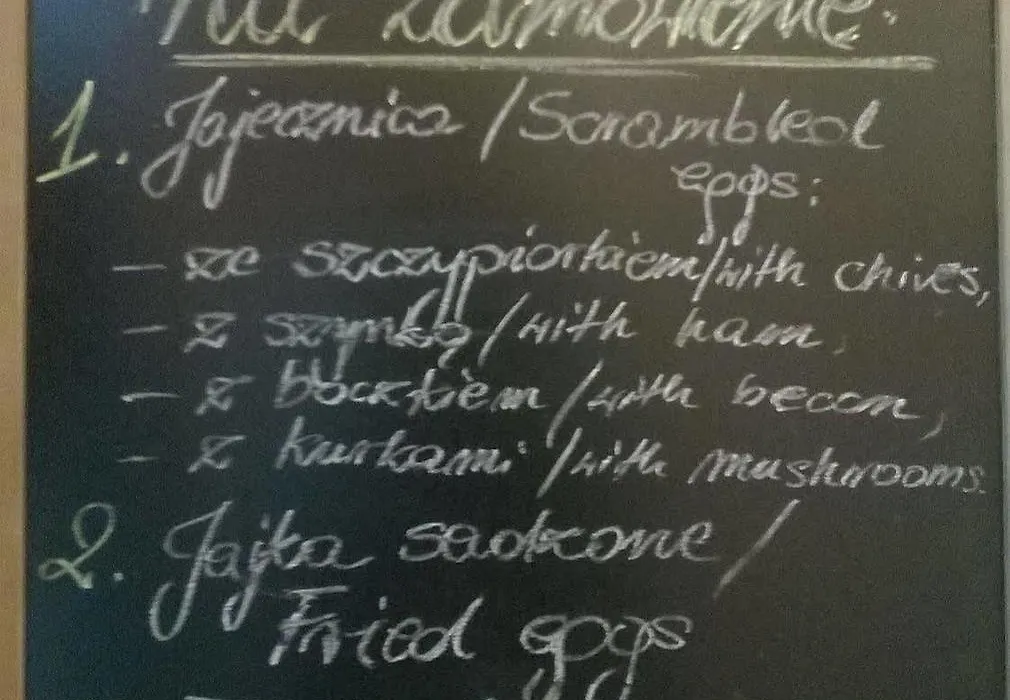 Na zamówienie:
1. Jajecznica / Scrambled
eggs:
- ze szczypiorkiem/with chives,
- z szynką/with ham,
- z boczkiem/with becon,
- z kurkami/with mushrooms.
2. Jajka sadzone /
Fried eggs